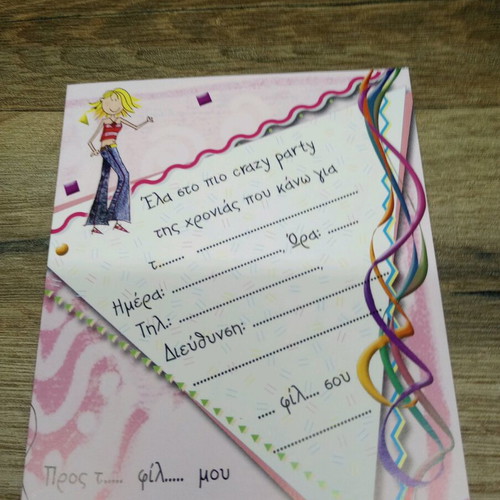 Έλα στο πιο crazy party
της χρονιάς που κάνω για
τ....... ........................................
Ημέρα: ............................ Ώρα: ..........
Τηλ.: ......................................
Διεύθυνση: ..................................
..................................................
.... φίλ.... σου
..........................
Προς τ..... φίλ..... μου